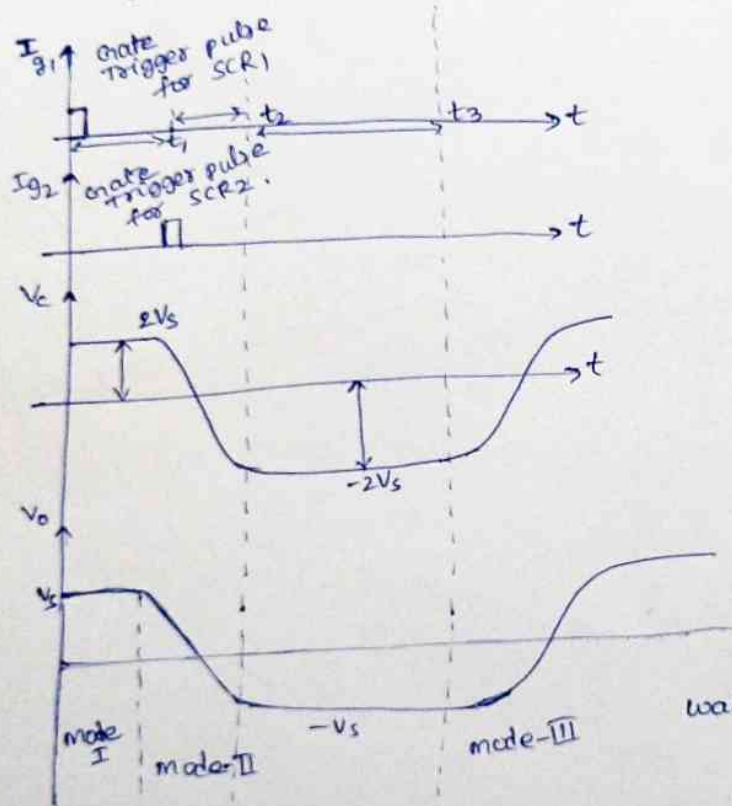 Ig1
Gate
Trigger pulse
for SCR1
t1
t2
t3
t
Ig2
Gate
Trigger pulse
for SCR2.
t
Vc
2Vs
t
-2Vs
Vo
Vs
-Vs
mode
I
mode-II
mode-III
wa